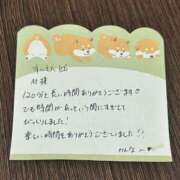 付様
120分と長い時間ありがとうございます♡
も時間が あっという間にすぎてて
びっくりしました!
楽しい時間をありがとうございました!!
かんな